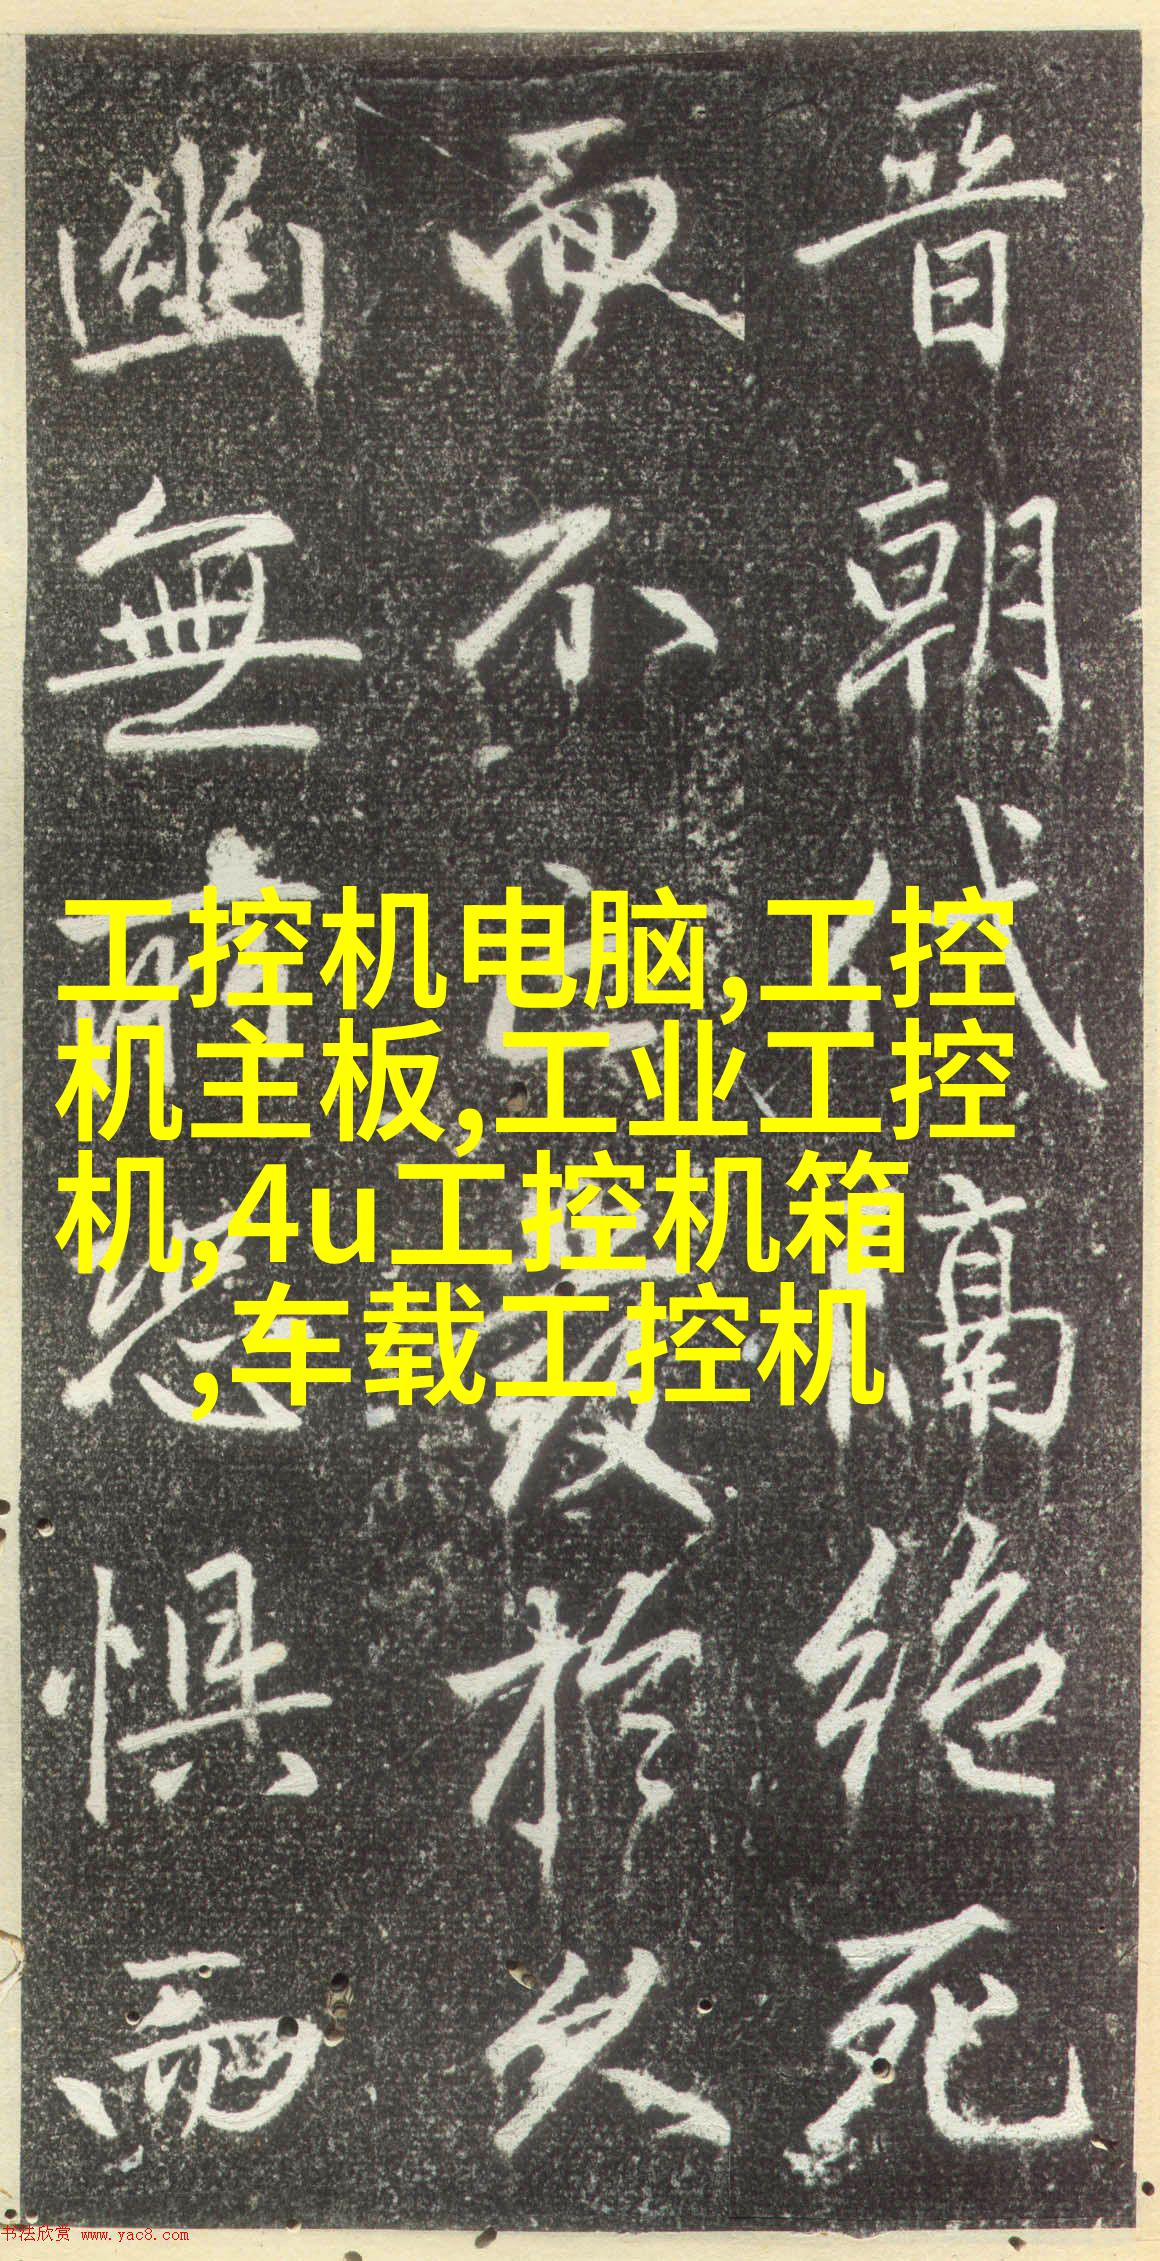 晋朝代隔絶死
而不亡於久
幽無惧
工控机电脑,工控
机主板,工业工控
机,4u工控机箱
,车载工控机
书法欣赏 www.yac8.com